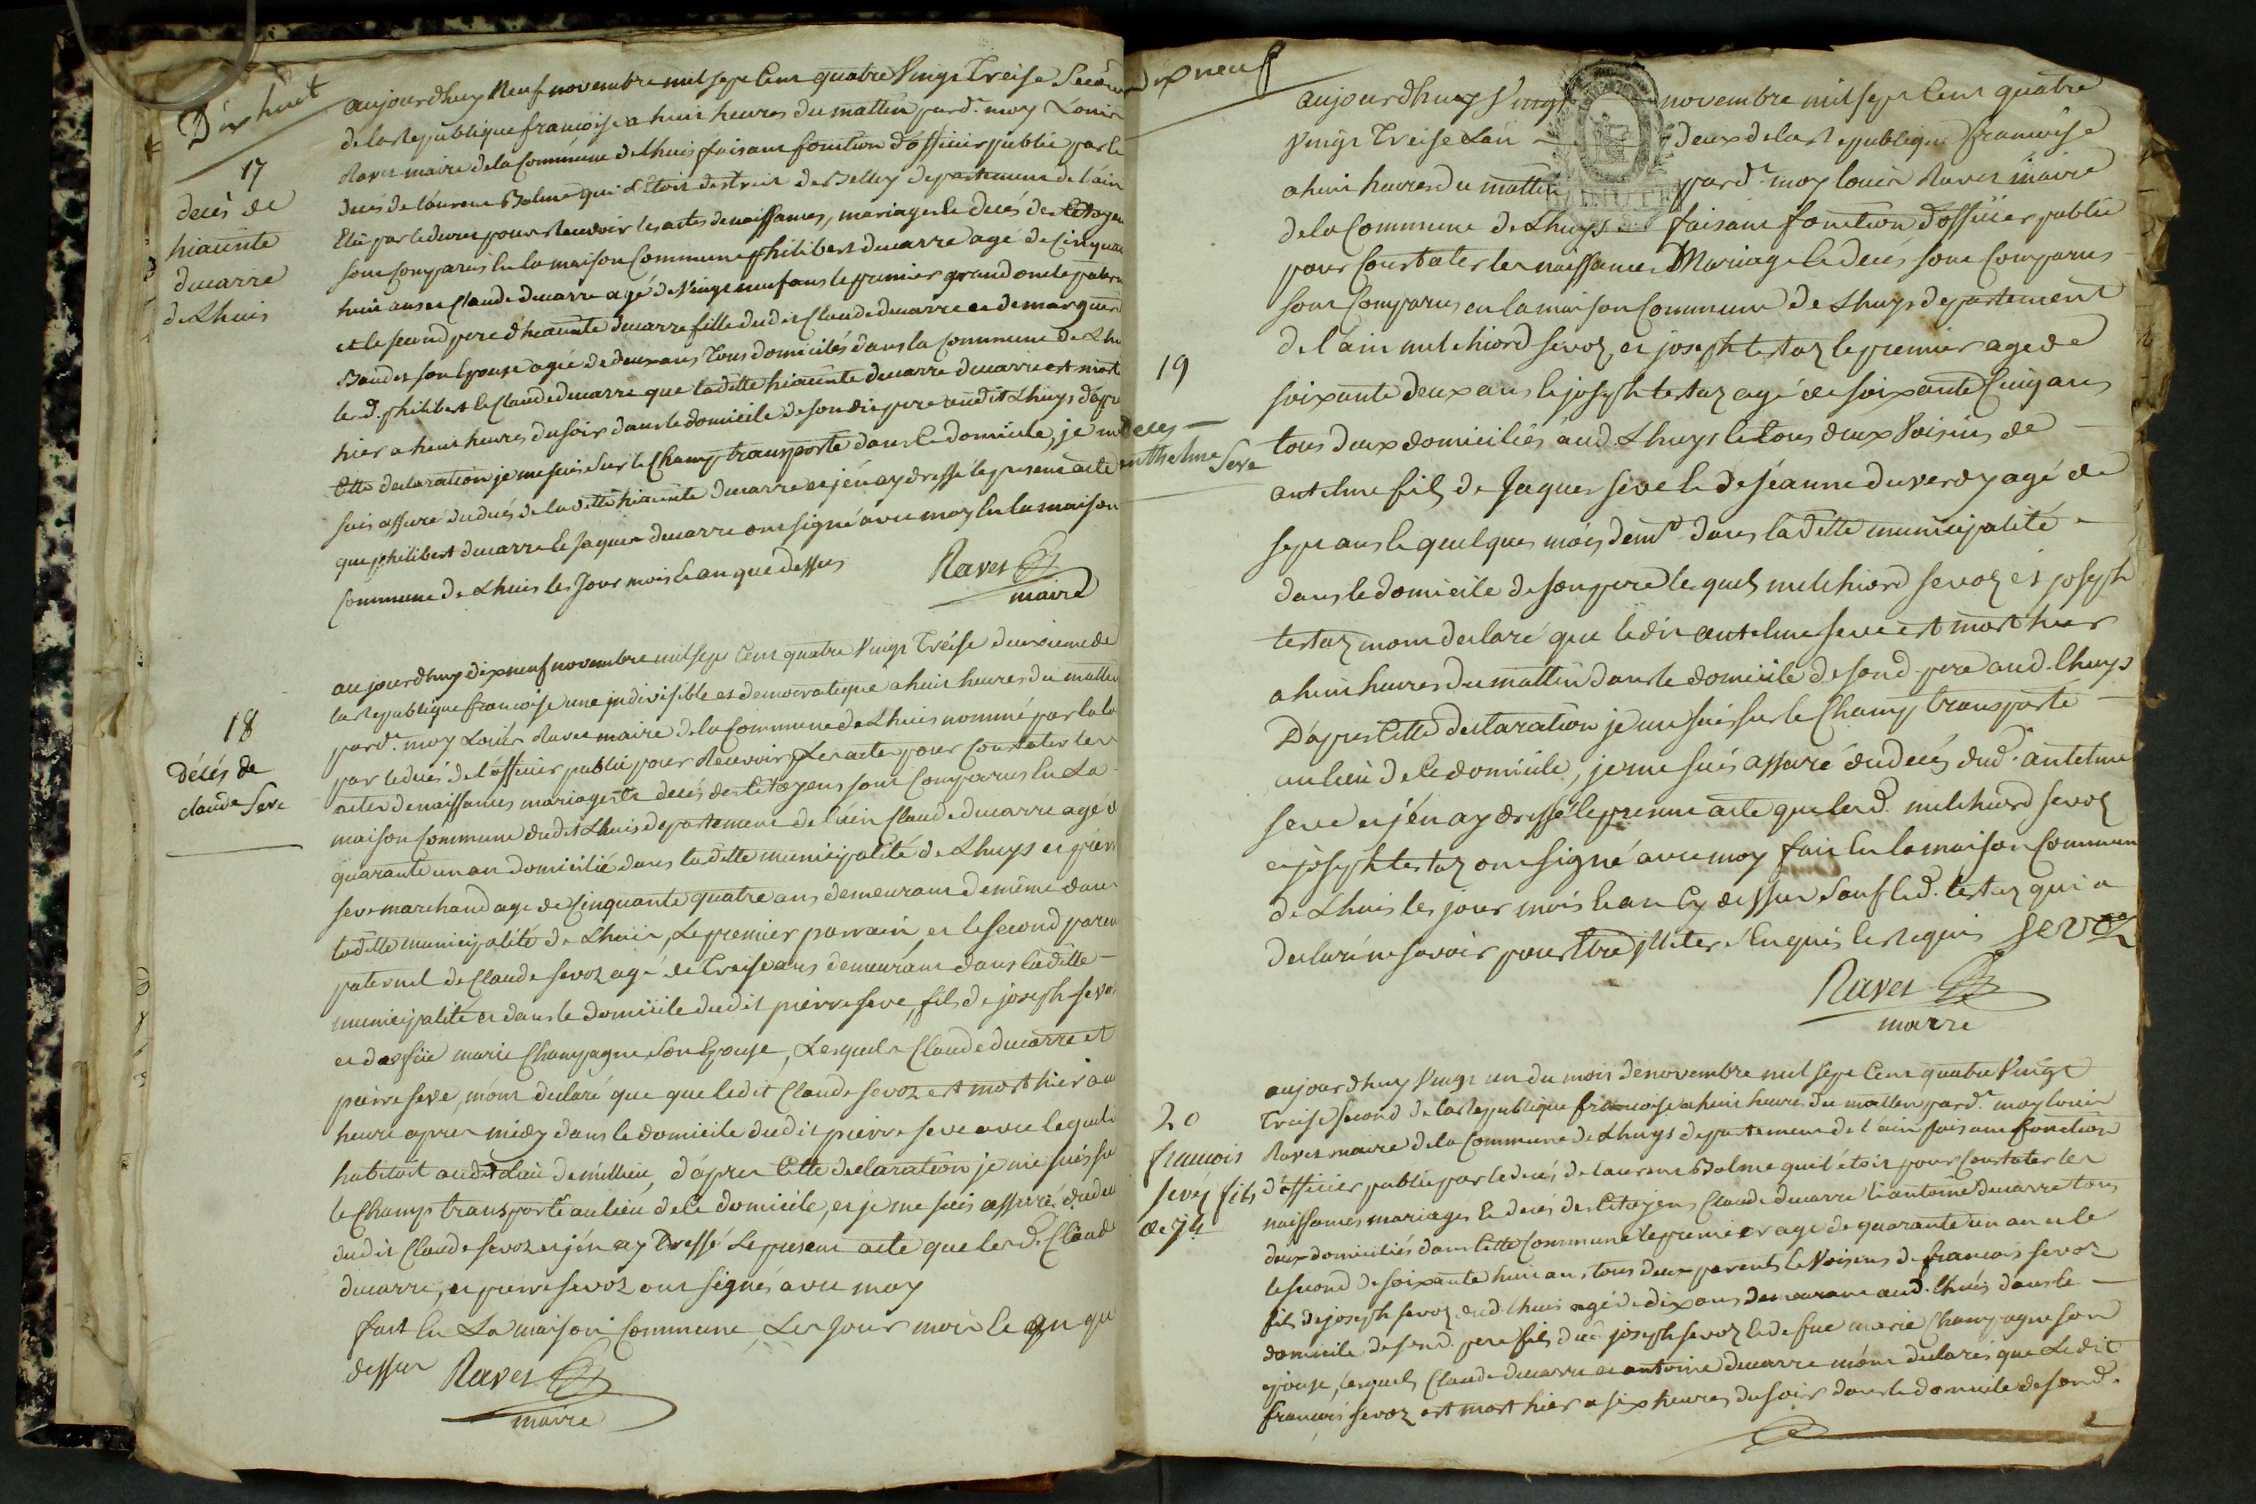 Dix huit
17
decès de
hiacinte
ducarre
de Lhuis
aujourdhuy Neuf novembre mil sept Cent quatre Vingt Treise Second
de la Republique francoise a huit heures du mattin pard. moy Louis
Ravet maire de la Commune de Lhuis faisant fonction d'officier public par le
decés de laurent Balme qui L'etoit destrict de Belley departement de l'ain
Elû par le decret pour Recevoir les actes de naissances, mariages le decés des Citoyens
sont comparus En la maison Commune philibert ducarre agé de Cinquante
huit ans et Claude ducarre agé de Vingt neuf ans le premier grand oncle patern
et le second pere d'hiacinte ducarre fille dudit Claude ducarre et de marguerit
Baudet son Epouse agée de deux ans Tous domiciliés dans la Commune de Lhu
les d. philibert le Claude ducarre que ladette hiacinte ducarre ducarre est mort
hier a huit heures du soir dans le domicile de son dit pere audit Lhuys d'apre
Cette declaration je me suis Sur le Champ transporté dans le domicile, je m
suis assuré du decés de ladette hiacinte ducarre et j'en ay dressé le present acte
que philibert ducarre le Jaques ducarre ont signé avec moy En la maison
Commune de Lhuis les Jour mois le an que dessus
Ravet
maire
18
décés de
claude Seve
aujourdhuy dix neuf novembre mil sept Cent quatre Vingt Tréise deuxieme de
la Republique francoise une indivisible et democratique a huit heures du mattin
pard. moy Loüis Ravet maire de la Commune de Lhuis nommé par la lo
par le decés de l'officier public pour Recevoir Les actes pour Constater les
actes de naissances mariages le decés des Citoyens sont Comparus En La
maison Commune dudit Lhuis departement de l'ain Claude ducarre agé d
quarante un an domicilié dans ladette municipalité de Lhuys et pierre
seve marchand agé de Cinquante quatre ans demeurant de même dans
ladette municipalité de Lhuis, Le premier parrain et le second paren
paternel de Claude sevoz agé de Treise ans demeurant dans ladette
municipalité et dans le domicile dudit pierre seve, fils de joseph sevo
et de feüe marie Champagne son Epouse, Lesquels Claude ducarre et
pierre seve, m'ont declaré que que ledit Claude sevoz est mort hier au
heure apres midy dans le domicile dudit pierre seve avec lequel
habitoit audit lieu de millieu, d'apres Cette declaration je me suis su
le Champ transporté au lieu de le domicile, et je me suis assuré du de
dudit Claude sevoz et j'en ay Dressé Le present acte que les d. Claude
ducarre, et pierre sevoz ont signés avec moy
fait En La maison Commune Les Jour mois le an que
dessus Ravet
maire
dix neuf
19
deces
anthelme Seve
aujourdhuy Vingt novembre mil sept Cent quatre
Vingt Treise Lan deux de la Republique francoise
a huit heures du mattin pard. moy louis Ravet maire
de la Commune de Lhuys faisant fonction d'officier public
pour Constater les naissances Mariage le decés sont Comparus
sont Comparus en la maison Commune de Lhuys departement
de l'ain melchiord sevoz, et joseph testaz le premier age de
soixante deux ans le joseph testaz agé de soixante Cinq ans
tous deux domiciliés aud. Lhuys le tous deux Voisins de
antelme fils de Jaques seve le de jéanne duverdy agé de
sept ans le quelques mois dem.t dans ladette municipalité
dans le domicile de son pere lesquels melchiord sevoz et joseph
testaz m'ont declaré que ledit antelme seve est mort hier
a huit heures du mattin dans le domicile de sond. pere aud. lhuys
D'apres Cette declaration je me suis sur le Champ transporté
au lieu de le domicile, je me suis assuré du decés dud. antelme
seve et j'en ay dressé le present acte que les d. melchiord sevoz
et joseph testaz ont signé avec moy fait En la maison Commune
de Lhuis les jour mois le an Cy dessus sauf le d. testaz qui a
declaré ne savoir pour Etre illiteré Enquis le Requis sevoz
Ravet
maire
20
francois
sevoz fils
de jh
aujourdhuy Vingt un du mois de novembre mil sept Cent quatre Vingt
Treise second de la Republique francoise a huit heures du mattin pard. moy louis
Ravet maire de la Commune de Lhuys departement de l'ain faisant fonction
d'officier public par le decés de laurent Balme qui l'étoit pour Constater les
naissances mariages le decés des Citoyens Claude ducarre le antoine ducarre tous
deux domiciliés dans Cette Commune le premier agé de quarante un an et le
le second de soixante huit ans tous deux parents le Voisins de francois sevoz
fils de joseph sevoz dud. lhuis agé de dix ans demeurant aud. lhuis dans le
domicile de sond. pere fils dud. joseph sevoz le de fue marie Champagne son
epouse, lesquels Claude ducarre et antoine ducarre m'ont declarés que Ledit
francois sevoz est mort hier a six heures du soir dans le domicile de sond.